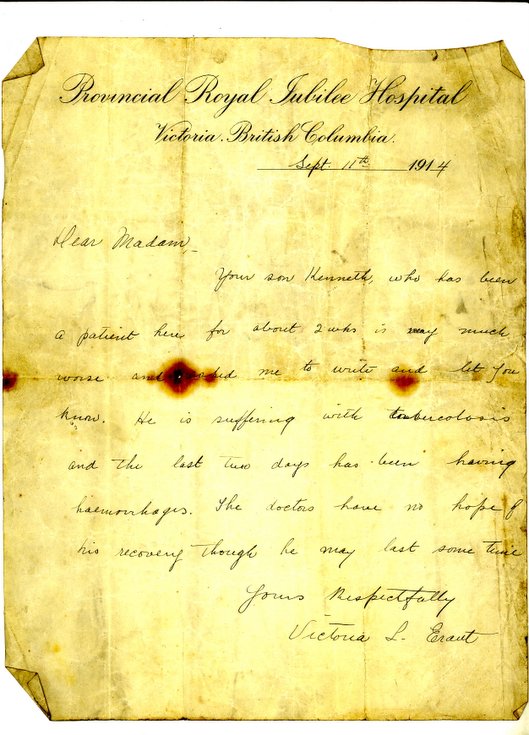 Provincial Royal Jubilee Hospital
Victoria. British Columbia.
Sept. 11th 1914
Dear Madam,
Your son Kenneth, who has been
a patient here for about 2 wks is very much
worse and asked me to write and let you
know. He is suffering with tuberculosis
and the last two days has been having
haemorrhages. The doctors have no hope of
his recovery though he may last some time
Yours Respectfully
Victoria L.